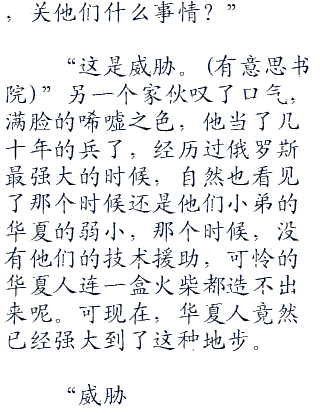 ，关他们什么事情？”
“这是威胁。(有意思书
院)”另一个家伙叹了口气，
满脸的唏嘘之色，他当了几
十年的兵了，经历过俄罗斯
最强大的时候，自然也看见
了那个时候还是他们小弟的
华夏的弱小，那个时候，没
有他们的技术援助，可怜的
华夏人连一盒火柴都造不出
来呢。可现在，华夏人竟然
已经强大到了这种地步。
“威胁